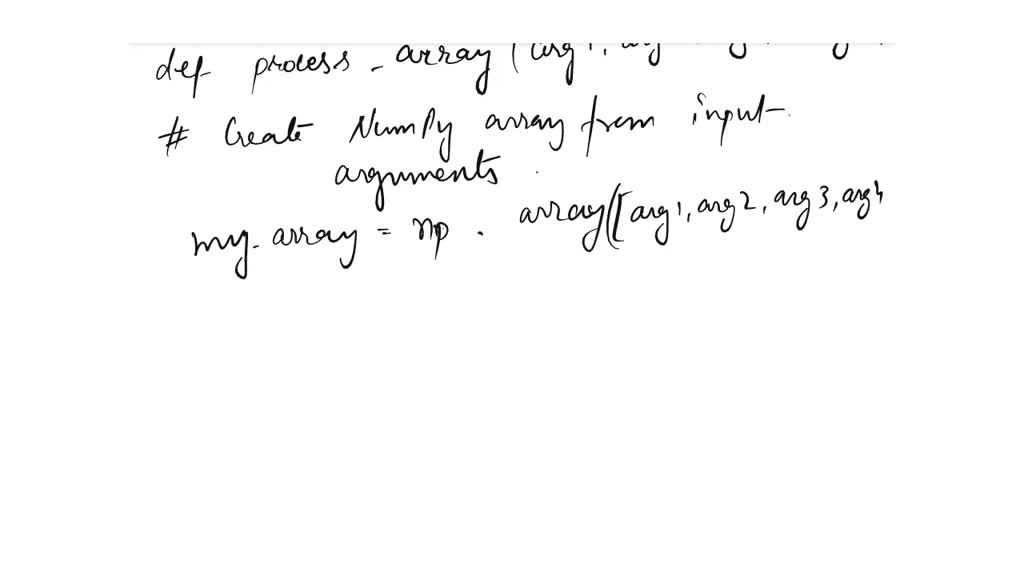 def process_array(arg1, arg
# Create NumPy array from input
arguments
my_array = np. array([arg1, arg2, arg3, arg4